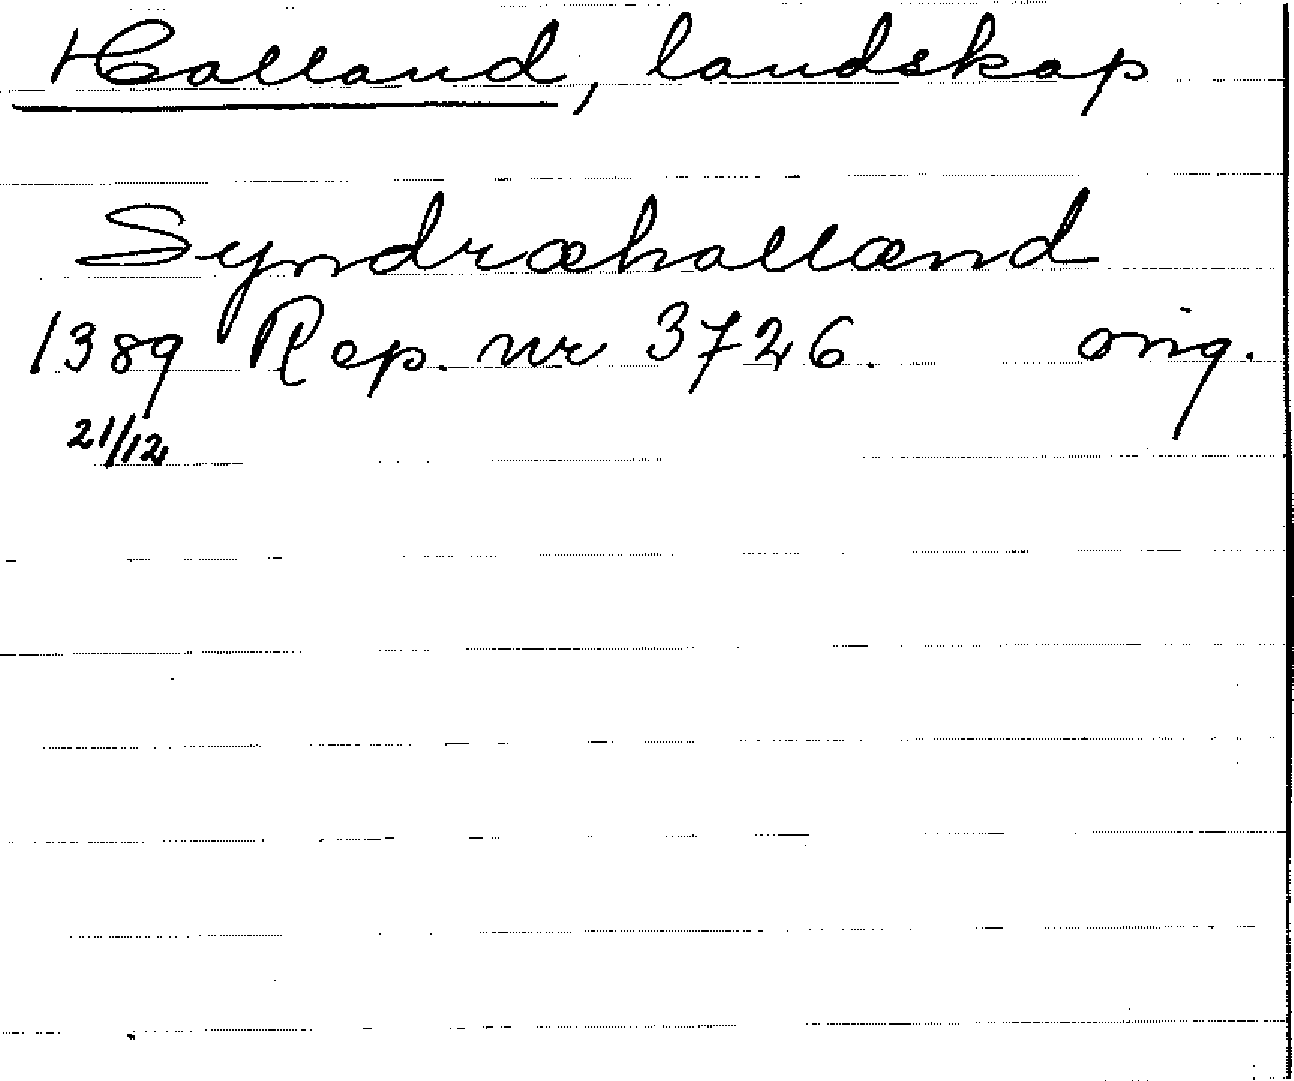 Halland, landskap
Syndræhallænd
1389 Rep. nr 3726. orig.
21/12